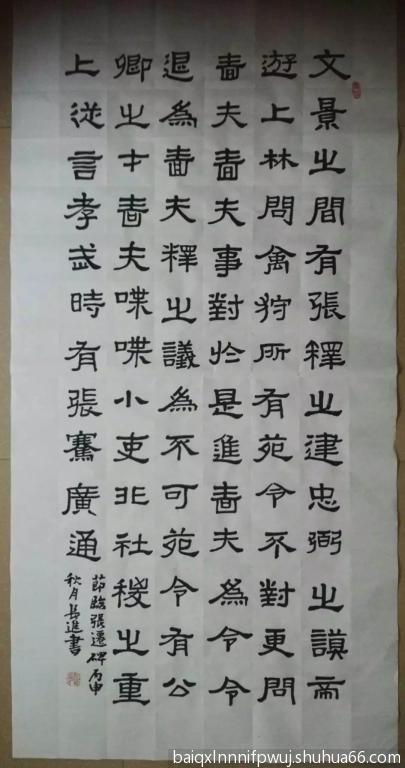 文景之間有張釋之建忠弼之謨帝
游上林問禽狩所有苑令不對更問
嗇夫嗇夫事對於是進嗇夫為令令
退為嗇夫釋之議為不可苑令有公
卿之才嗇夫喋喋小吏非社稷之重
上從言孝武時有張騫廣通
節臨張遷碑丙申
秋月長進書
baiqxlnnnifpwuj.shuhua66.com